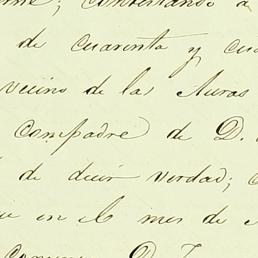 contestando a
de cuarenta y
vecino de las Auras
compadre de D.
de decir verdad;
en el mes de
D.